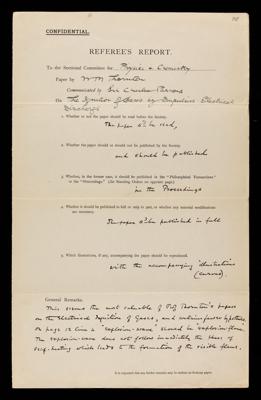 CONFIDENTIAL.
REFEREE'S REPORT.
To the Sectional Committee for Physics & Chemistry
Paper by W M Thornton
Communicated by Sir Charles Parsons
On The Ignition of Gases by Impulsive Electrical
Discharge
1. Whether or not the paper should be read before the Society.
The paper shd be read,
2. Whether the paper should or should not be published by the Society.
and should be published
3. Whether, in the former case, it should be published in the "Philosophical Transactions"
or the "Proceedings." (See Standing Orders on opposite page.)
in the Proceedings
4. Whether it should be published in full or only in part, or whether any material modifications
are necessary.
The paper shd be published in full
5. Which illustrations, if any, accompanying the paper should be reproduced.
with the accompanying illustrations
(curves).
General Remarks.
This seems the most valuable of Prof Thornton's papers
on the Electrical Ignition of Gases, and
On page 12 line 2 "explosion-wave" should be explosion-flame.
The explosion-wave does not follow immediately the phase of
self-heating which leads to the formation of the visible flame.
It is requested that any further remarks may be written on foolscap paper.